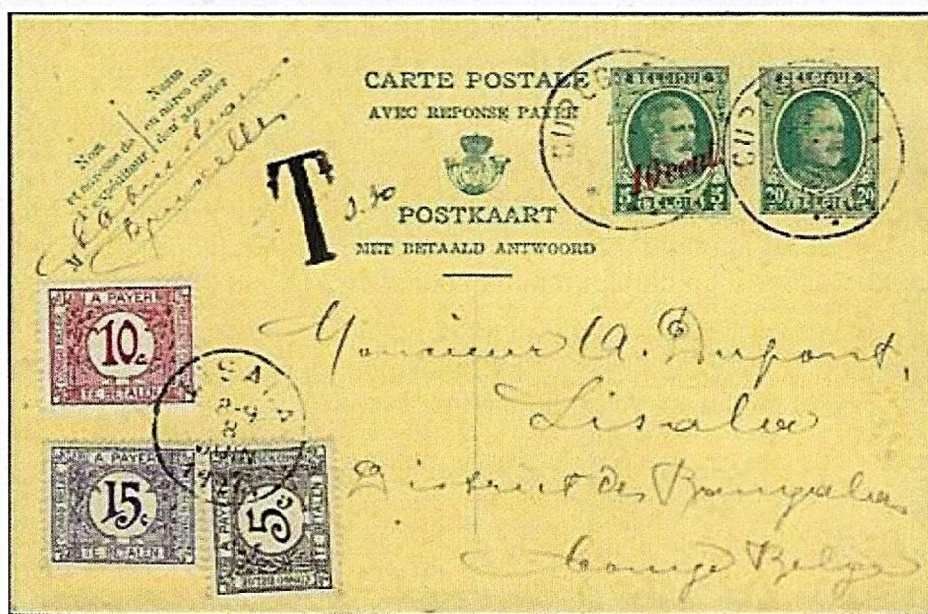 CARTE POSTALE
AVEC REPONSE PAYEE
POSTKAART
MET BETAALD ANTWOORD
Nom
et adresse de
l'expéditeur
Naam
en adres van
den afzender
Bruxelles
T
BELGIQUE
10 cent.
5 5
BELGIË
BELGIQUE
20 20
BELGIË
A PAYER
10 c
TE BETALEN
A PAYER
15 c
TE BETALEN
A PAYER
5 c
TE BETALEN
8-9
8
Monsieur A. Dupont,
Lisala
District des Bangalas
Congo Belge